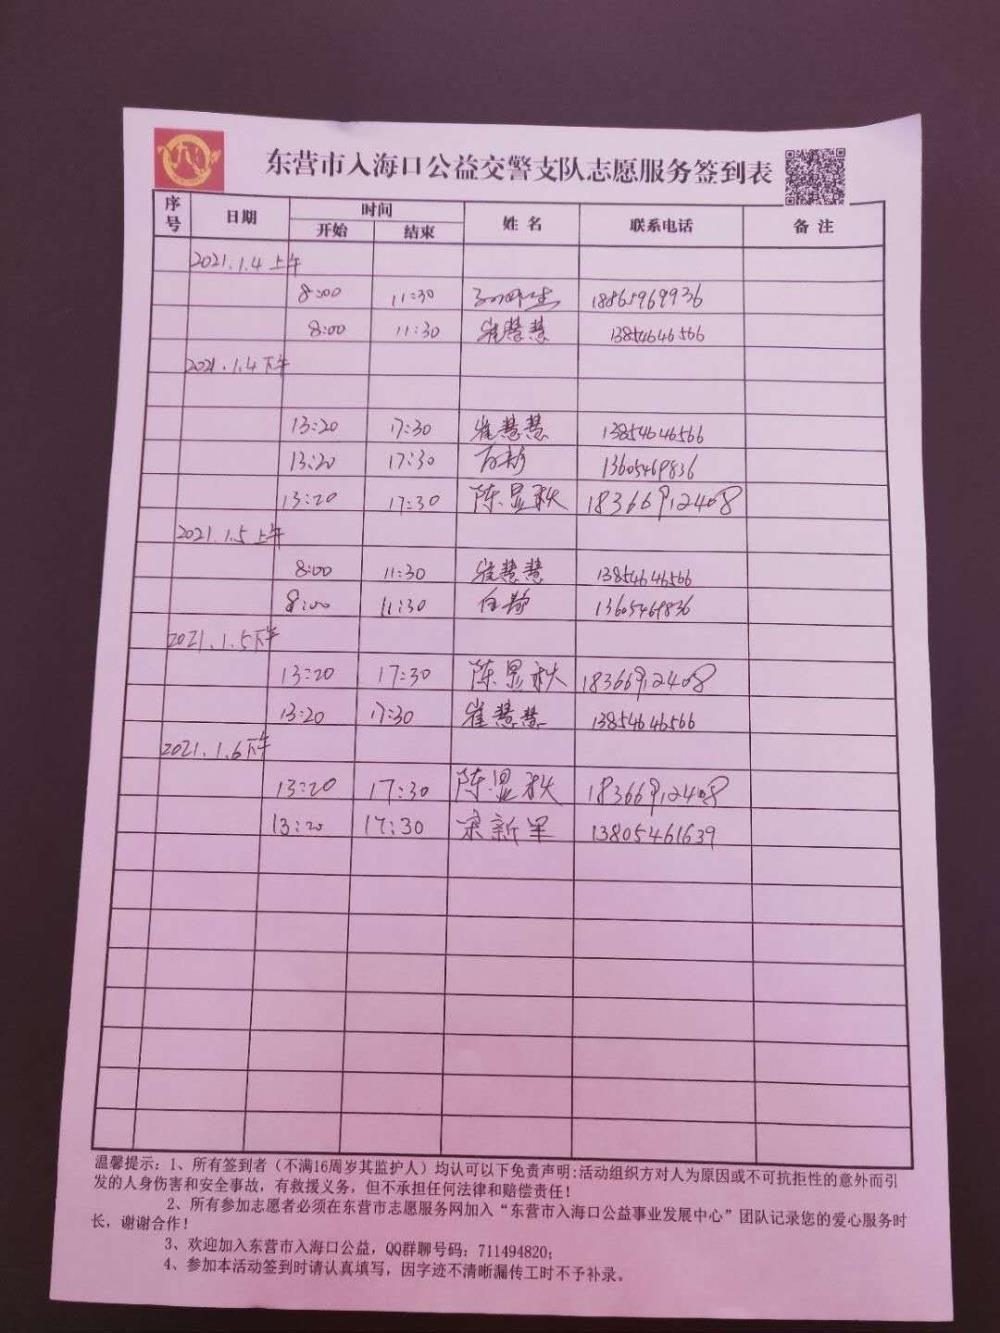 东营市入海口公益交警支队志愿服务签到表
序号 日期 时间 姓名 联系电话 备注
开始 结束
2021.1.4上午
8:00 11:30 18865969936
8:00 11:30 崔慧慧 13854646566
2021.1.4下午
13:20 17:30 崔慧慧 13854646566
13:20 17:30 13605469836
13:20 17:30 陈显秋 18366912408
2021.1.5上午
8:00 11:30 崔慧慧 13854646566
8:00 11:30 13605469836
2021.1.5下午
13:20 17:30 陈显秋 18366912408
13:20 17:30 崔慧慧 13854646566
2021.1.6下午
13:20 17:30 陈显秋 18366912408
13:20 17:30 宋新军 13805461639
温馨提示：1、所有签到者（不满16周岁其监护人）均认可以下免责声明:活动组织方对人为原因或不可抗拒性的意外而引
发的人身伤害和安全事故，有救援义务，但不承担任何法律和赔偿责任！
2、所有参加志愿者必须在东营市志愿服务网加入“东营市入海口公益事业发展中心”团队记录您的爱心服务时
长，谢谢合作！
3、欢迎加入东营市入海口公益，QQ群聊号码：711494820；
4、参加本活动签到时请认真填写，因字迹不清晰漏传工时不予补录。